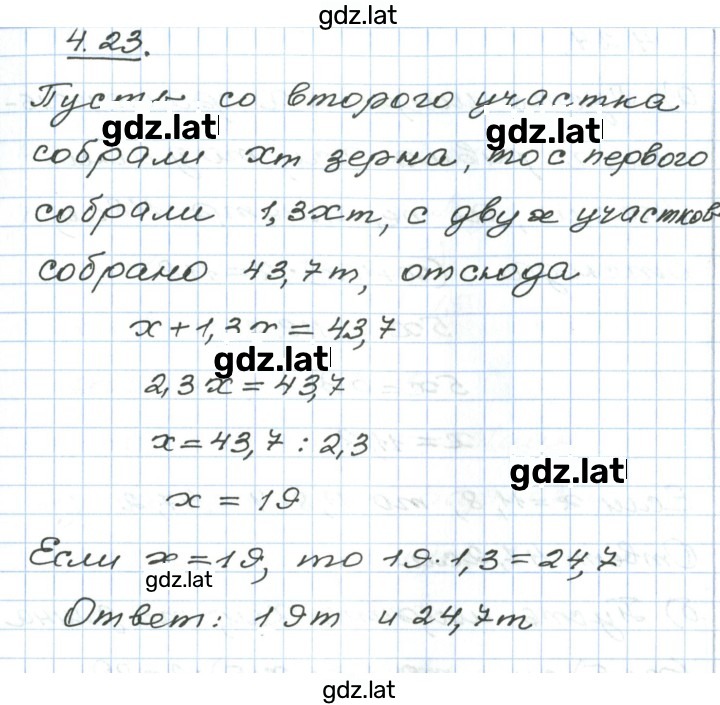 gdz.lat
4.23.
Пусть со второго участка
gdz.lat gdz.lat
собрали xт зерна, то с первого
собрали 1,3xт, с двух участков
собрано 43,7т, отсюда
x+1,3x=43,7
gdz.lat
2,3x=43,7
x=43,7:2,3
gdz.lat
x=19
Если x=19, то 19·1,3=24,7
gdz.lat
Ответ: 19т и 24,7т
gdz.lat